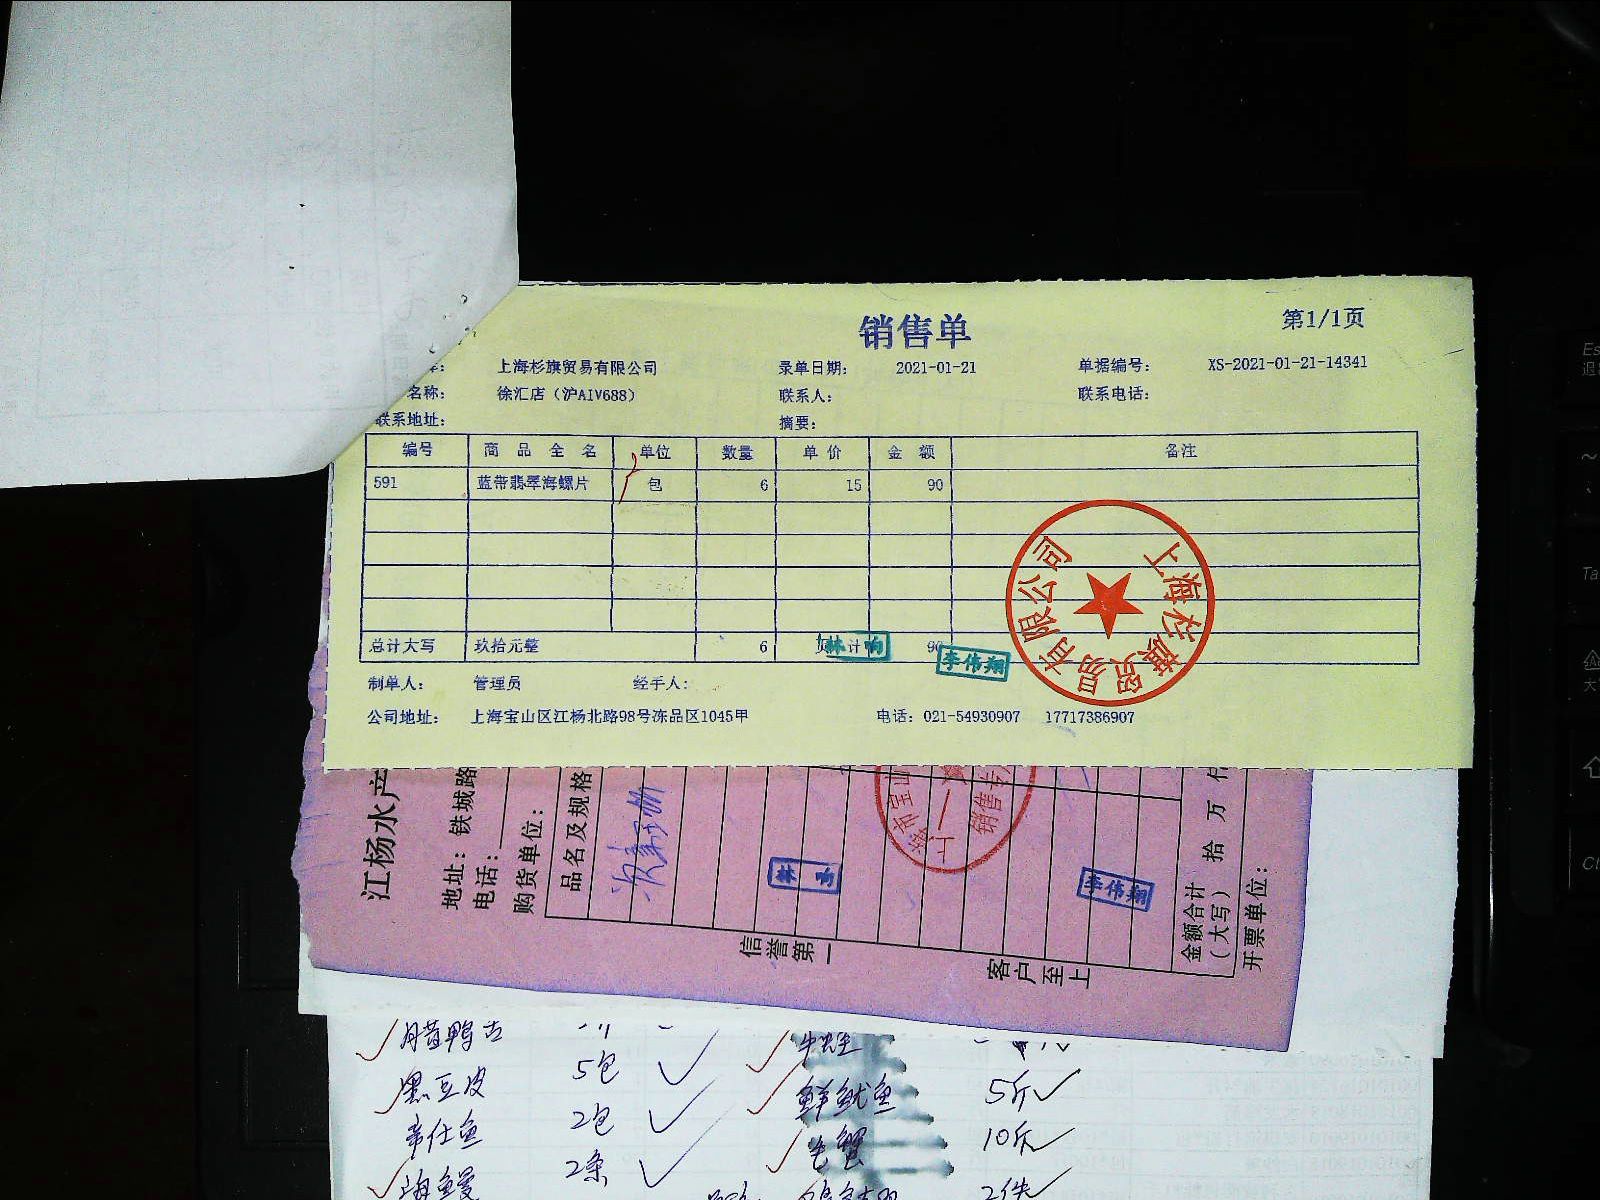 销售单
第1/1页
上海杉旗贸易有限公司 录单日期: 2021-01-21 单据编号: XS-2021-01-21-14341
名称: 徐汇店（沪AIV688） 联系人: 联系电话:
联系地址: 摘要:
编号 商品全名 单位 数量 单价 金额 备注
591 蓝带翡翠海螺片 包 6 15 90
总计大写 玖拾元整 6 计 90
林响
李伟翔
上海杉旗贸易有限公司
制单人: 管理员 经手人:
公司地址: 上海宝山区江杨北路98号冻品区1045甲 电话: 021-54930907 17717386907
江杨水产
地址: 铁城路
电话:
购货单位:
品名及规格
市宝山
销售专
林响
李伟翔
信誉第一
客户至上
金额合计
(大写)
拾 万 仟
开票单位:
腊鸭
牛蛙
黑豆皮 5包
鲜鱿鱼 5斤
2包
毛蟹 10斤
海鳗 2条
2件